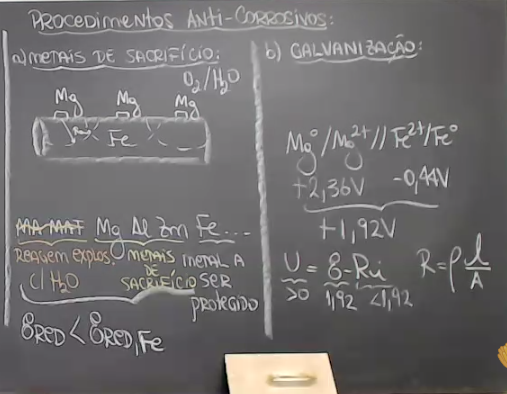 PROCEDIMENTOS ANTI-CORROSIVOS:
a) METAIS DE SACRIFÍCIO:
O₂/H₂O
Mg Mg Mg
Fe
MA MAT Mg Al Zn Fe...
REAGEM EXPLOS. METAIS METAL A
C/ H₂O DE SER
SACRIFÍCIO PROTEGIDO
ℰRED < ℰRED, Fe
b) GALVANIZAÇÃO:
Mg⁰/Mg²⁺//Fe²⁺/Fe⁰
+2,36V -0,44V
+1,92V
U = ℰ - Ri R = ρ l/A
>0 1,92 <1,92